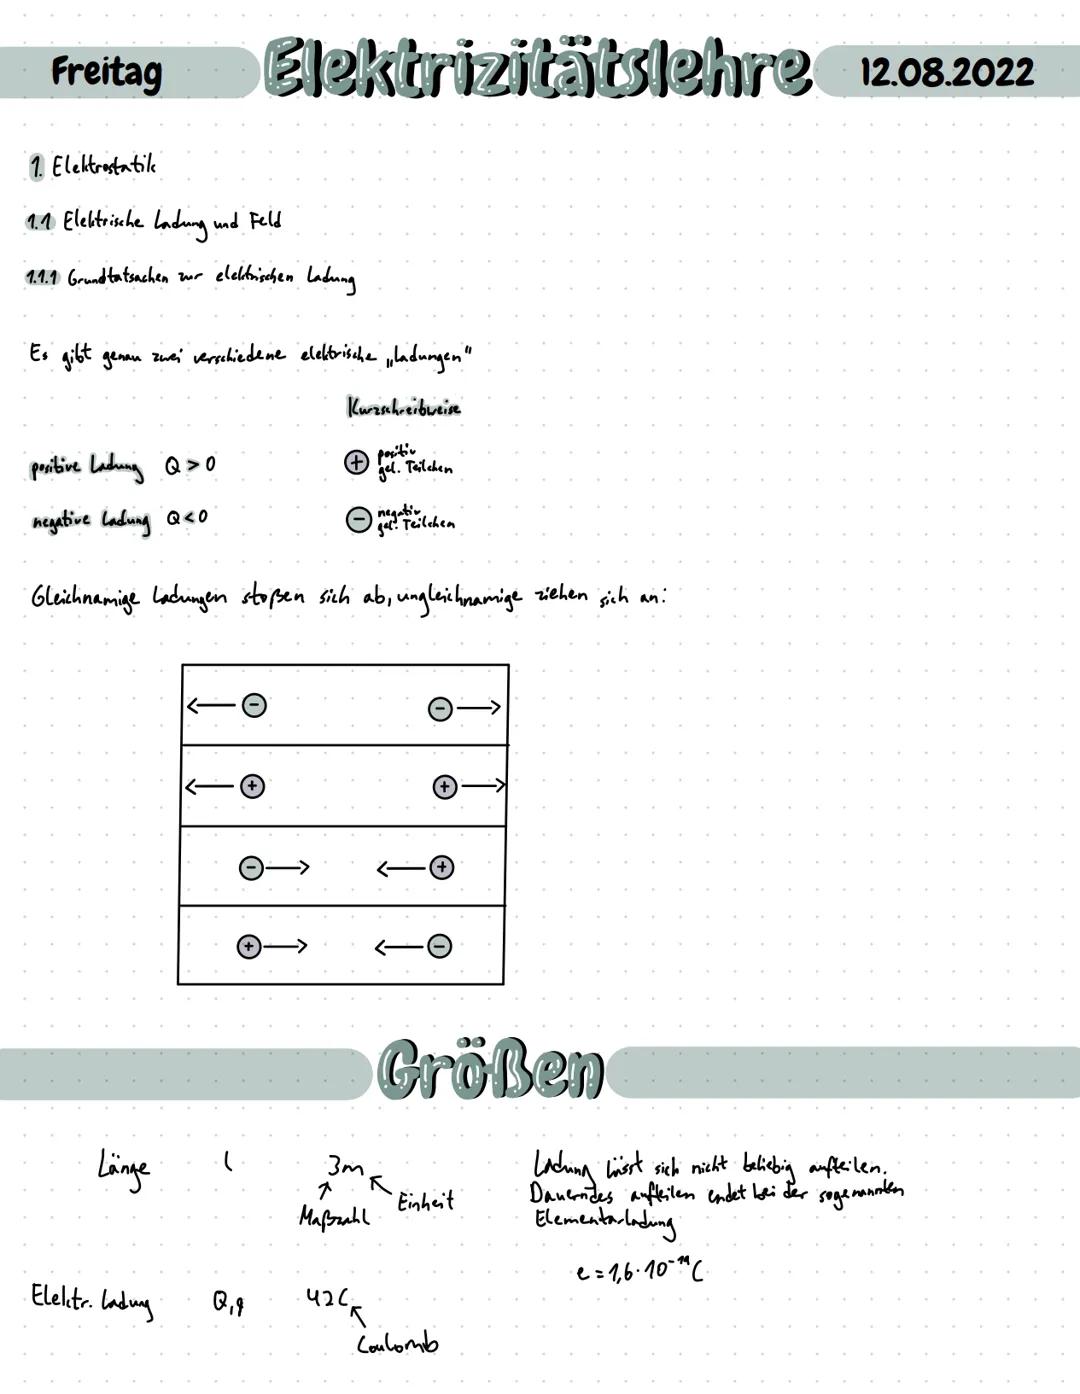 Freitag Elektrizitätslehre 12.08.2022
1. Elektrostatik
1.1 Elektrische Ladung und Feld
1.1.1 Grundtatsachen zur elektrischen Ladung
Es gibt genau zwei verschiedene elektrische „Ladungen"
Kurzschreibweise
positive Ladung Q > 0 + positiv
gel. Teilchen
negative Ladung Q < 0 − negativ
gel. Teilchen
Gleichnamige Ladungen stoßen sich ab, ungleichnamige ziehen sich an:
← − − →
← + + →
− → ← +
+ → ← −
Größen
Länge l 3m
Maßzahl Einheit
Ladung lässt sich nicht beliebig aufteilen.
Dauerndes aufteilen endet bei der sogenannten
Elementarladung
e = 1,6 · 10 C
Elektr. Ladung Q, q 42C
Coulomb